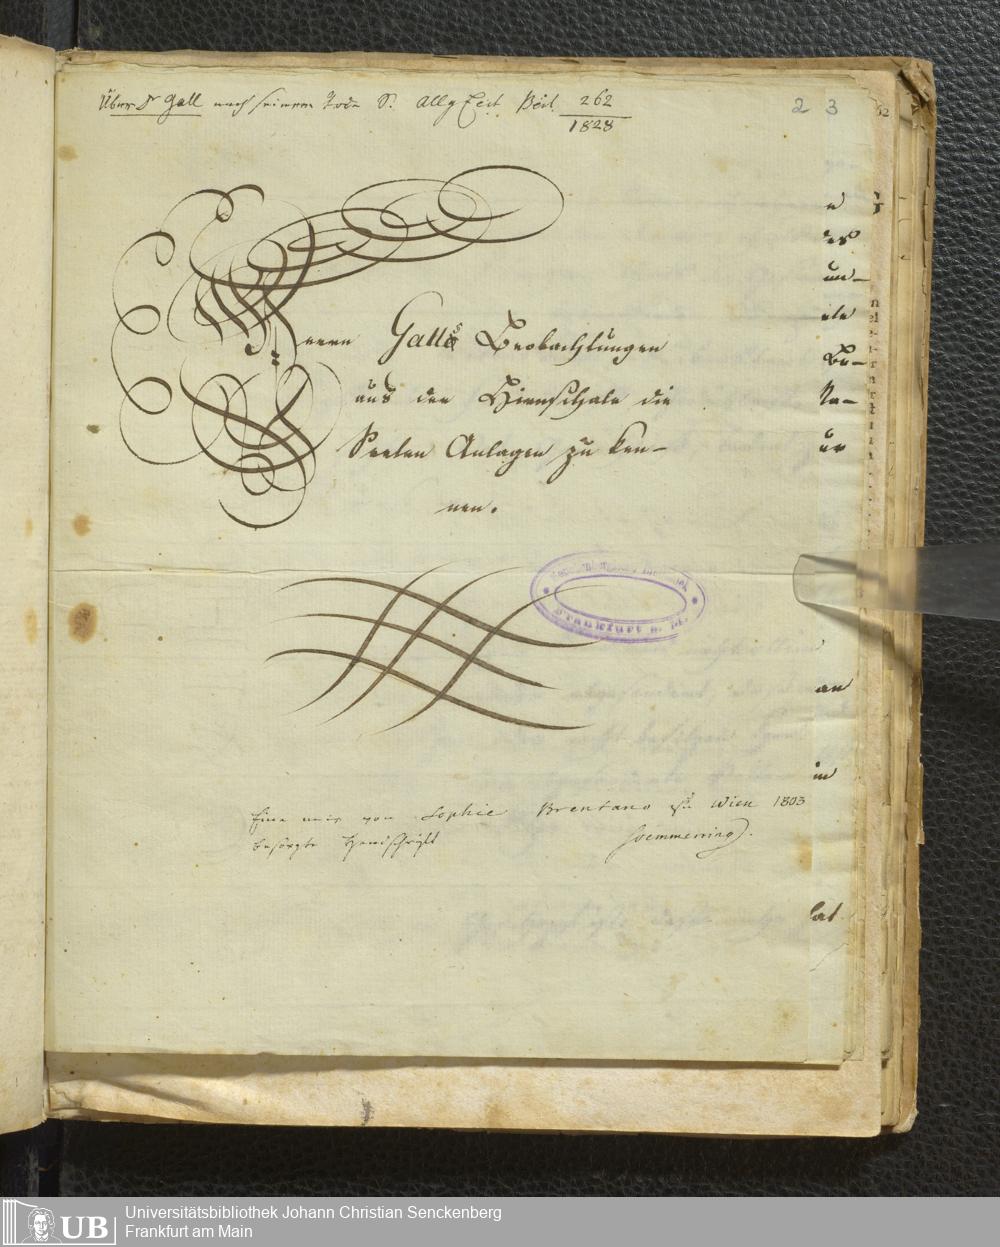 Über Dr Gall nach seinem Tode S. Allg Zeit. Beil. 262
1828
2 3
Herrn Galls Beobachtungen
aus der Hirnschale die
Seelen Anlagen zu ken-
nen.
Frankfurt a. M.
Eine mir von Sophie Brentano zu Wien 1803
besorgte Handschrift
Soemmerring.
un-
an
in
hat
UB
Universitätsbibliothek Johann Christian Senckenberg
Frankfurt am Main